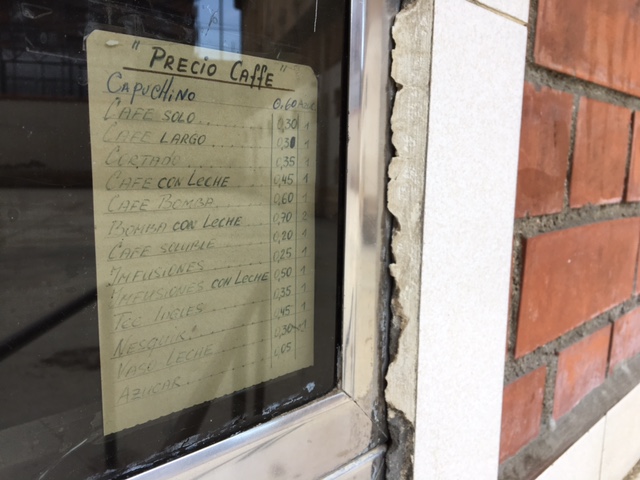 "Precio Caffe"
CAPUCHINO 0,60
CAFE SOLO 0,30 1
CAFE LARGO 0,30 1
CORTADO 0,35 1
CAFE CON LECHE 0,45 1
CAFE BOMBA 0,60 1
BOMBA CON LECHE 0,70 2
CAFE SOLUBLE 0,20 1
IMFUSIONES 0,25 1
IMFUSIONES CON LECHE 0,50 1
TEE 0,35 1
NESQUIK 0,45 1
VASO LECHE 0,30
AZUCAR 0,05